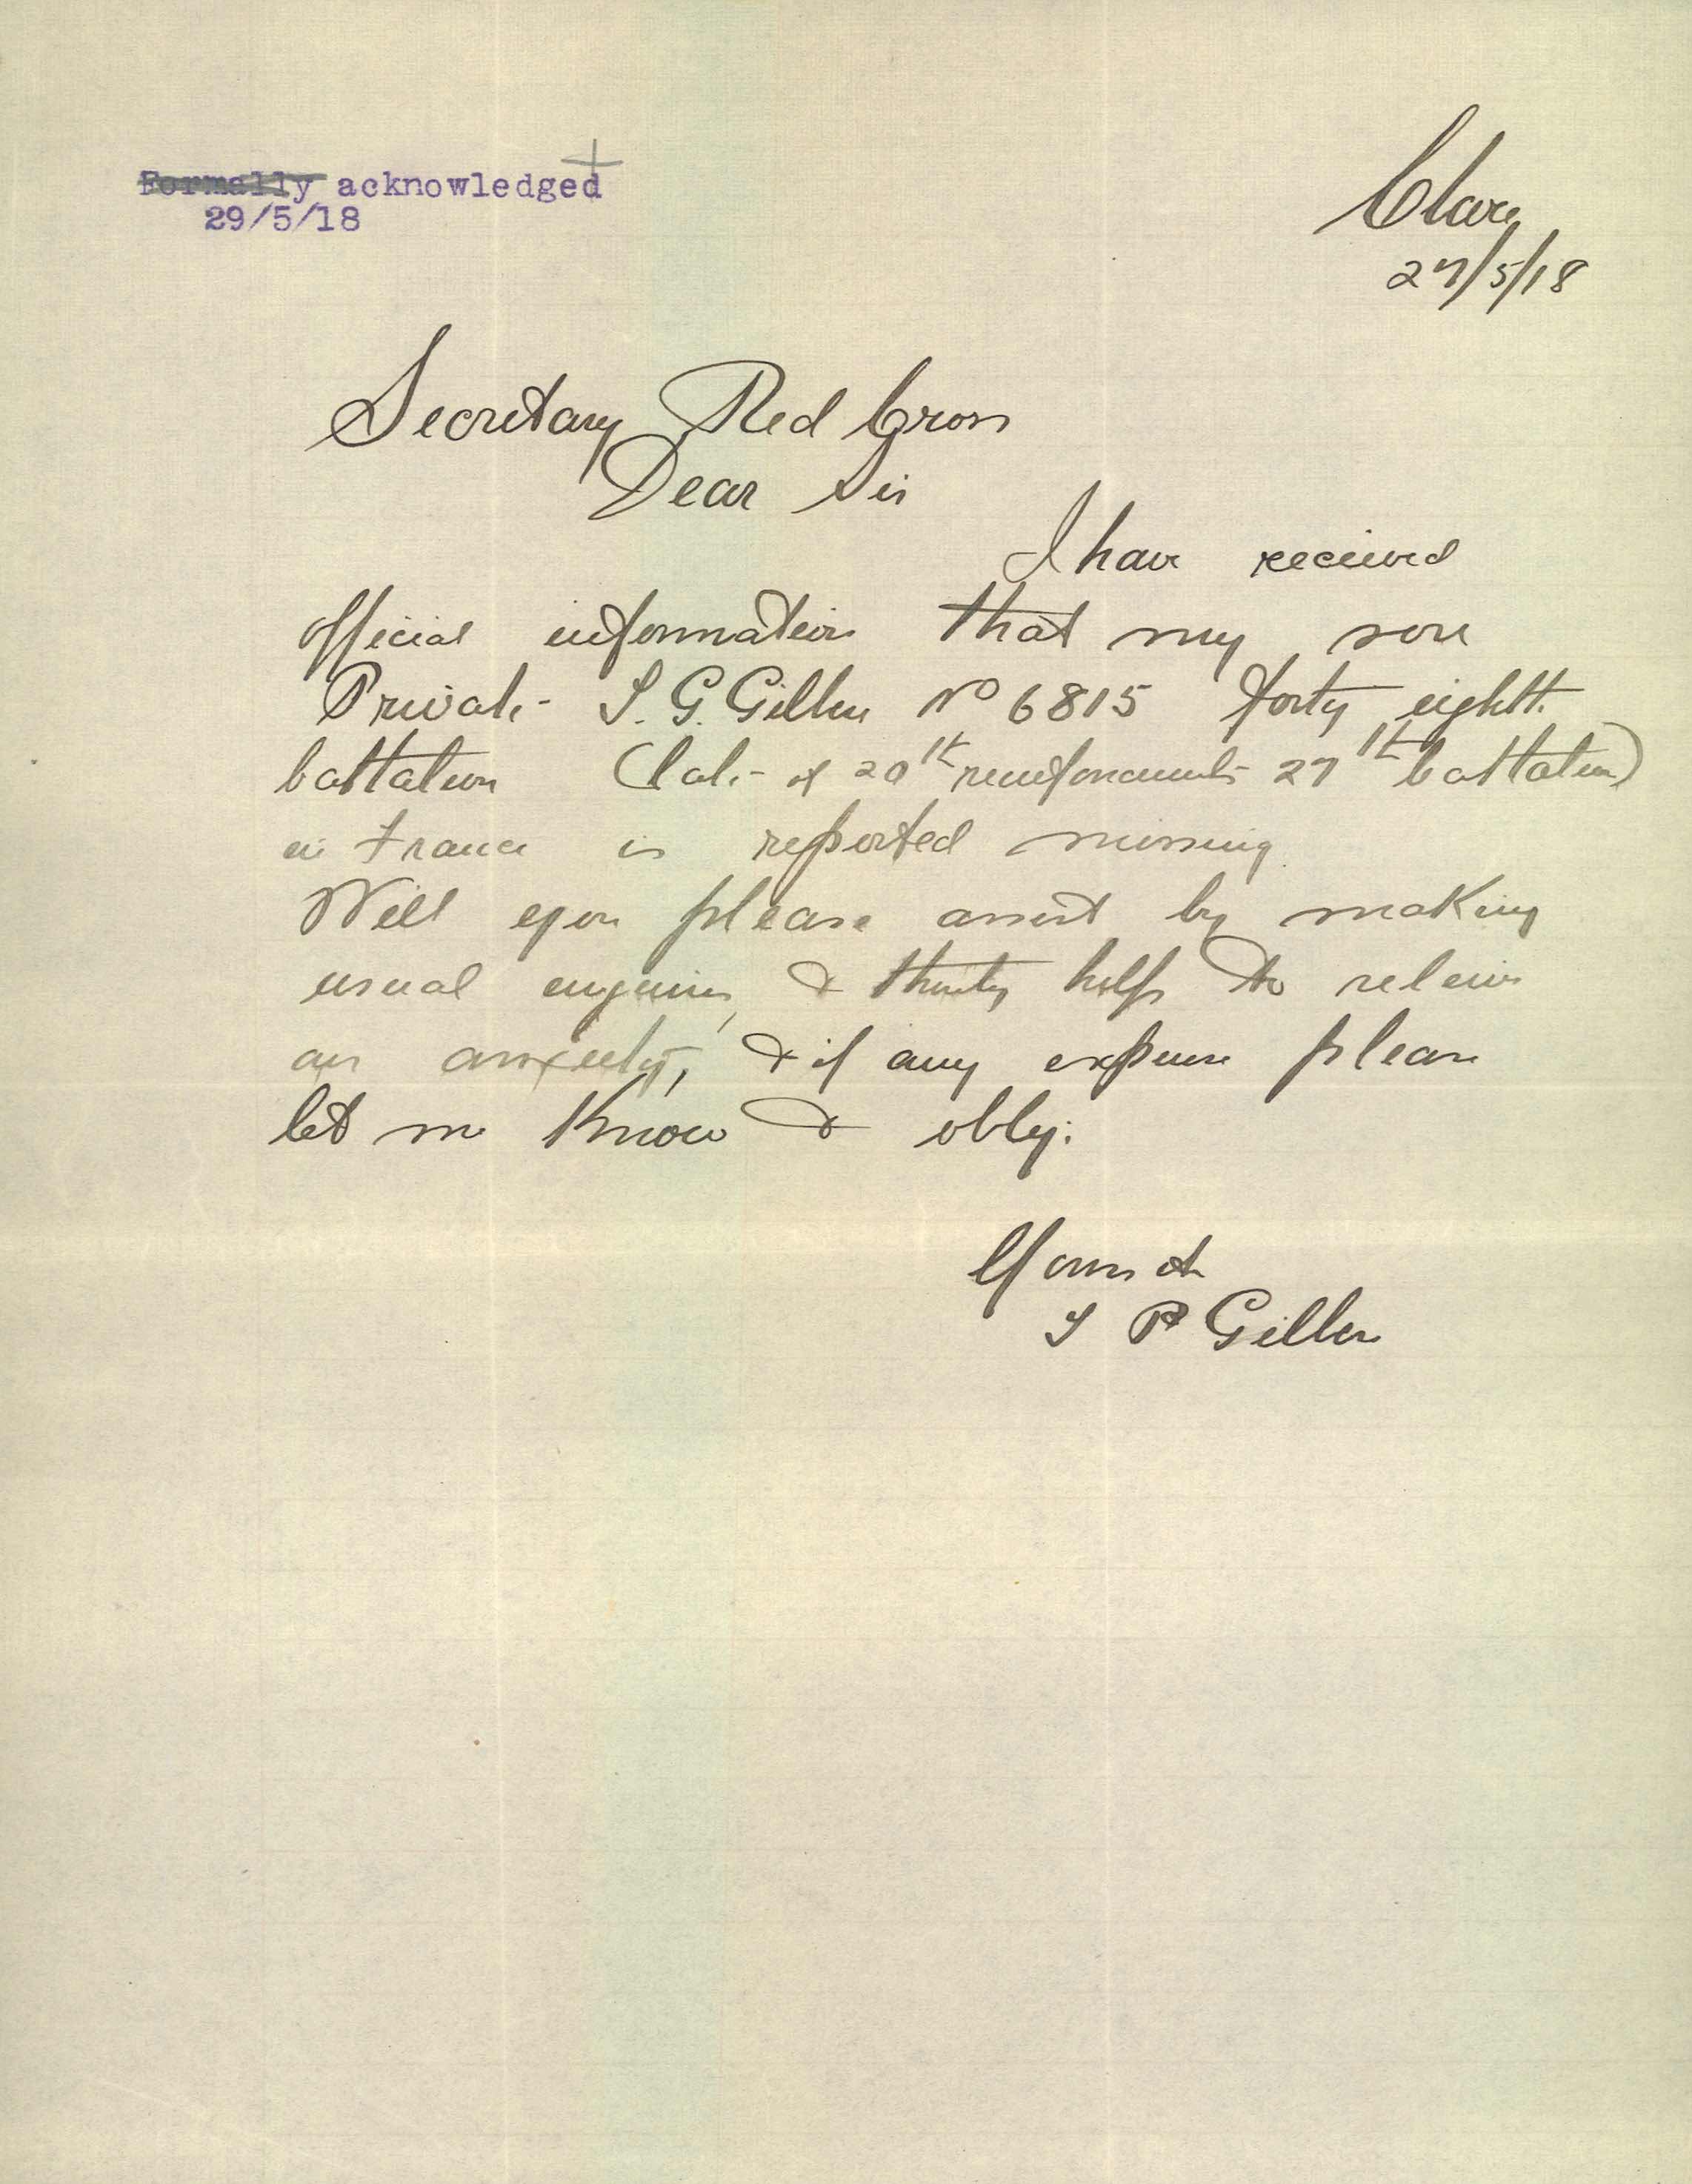 Formally acknowledged
29/5/18
Clare
27/5/18
Secretary Red Cross
Dear Sir
I have received
official information that my son
Private S. G. Gillen No 6815 forty eighth
battalion (late of 20th reinforcements 27th battalion)
in France is reported missing
Will you please assist by making
usual enquiries, & thereby help to relieve
an anxiety, & if any expense please
let me know & oblg:
Yours etc
P Gillen